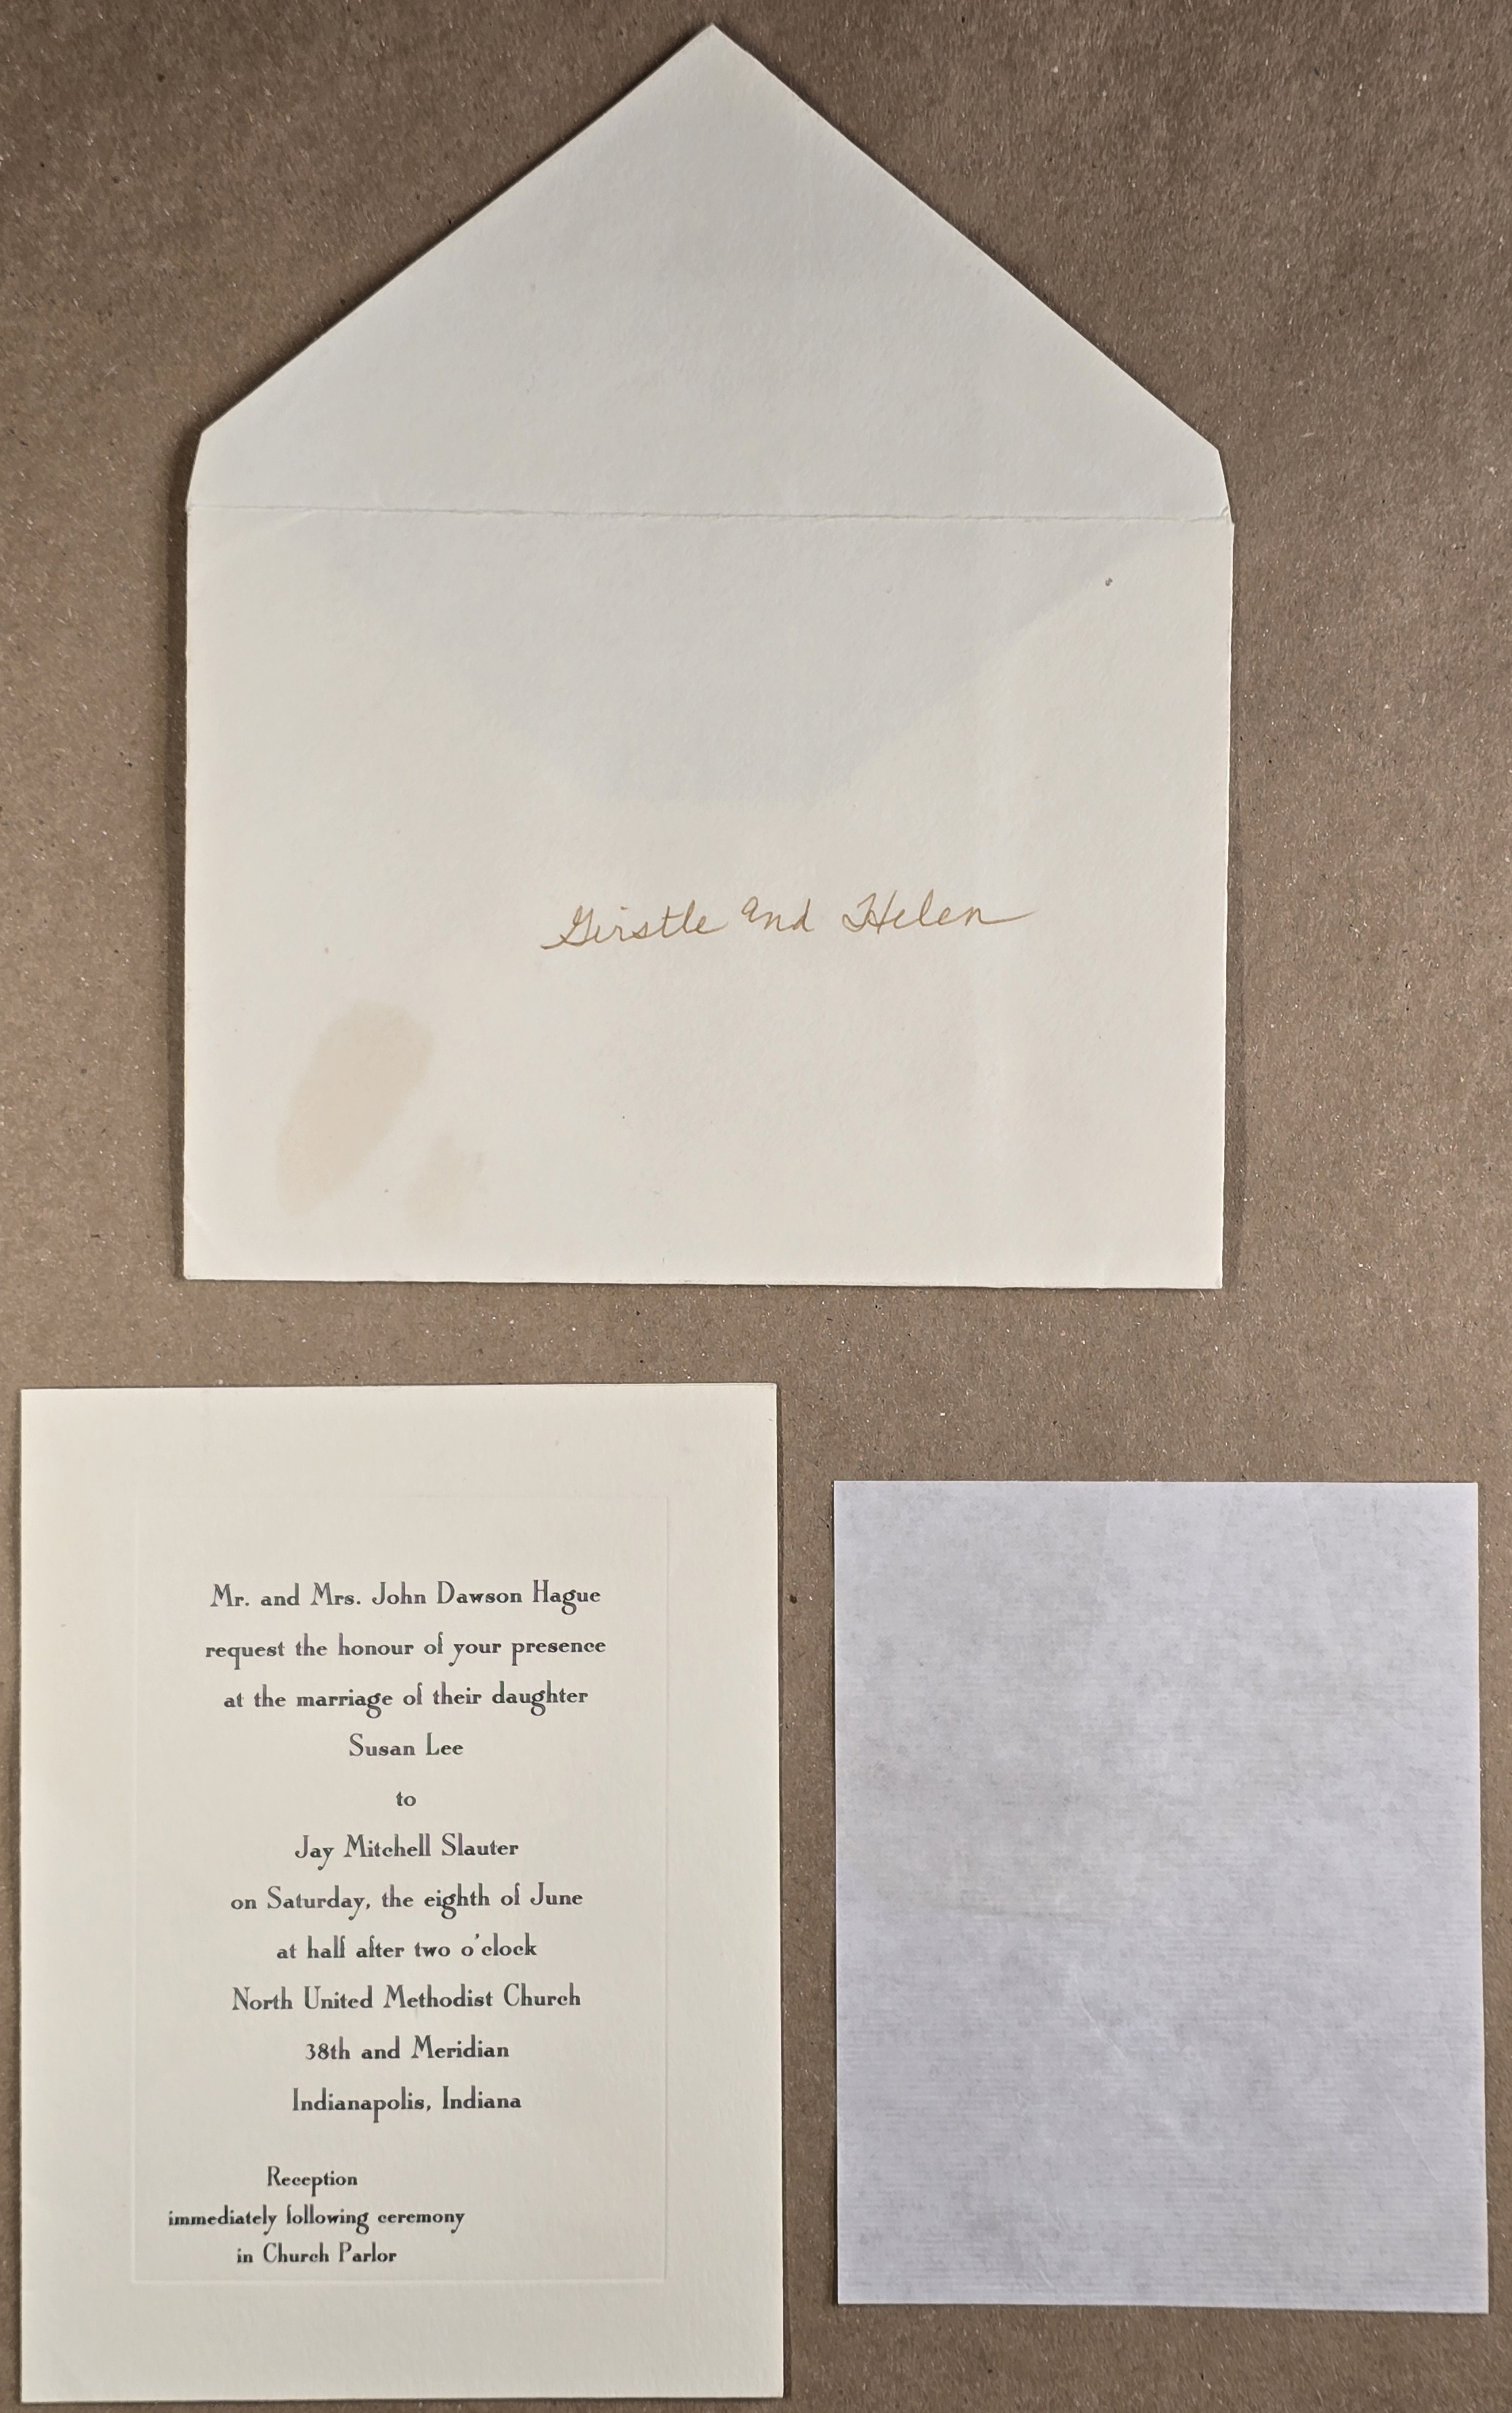 Girstle and Helen
Mr. and Mrs. John Dawson Hague
request the honour of your presence
at the marriage of their daughter
Susan Lee
to
Jay Mitchell Slauter
on Saturday, the eighth of June
at half after two o'clock
North United Methodist Church
38th and Meridian
Indianapolis, Indiana
Reception
immediately following ceremony
in Church Parlor